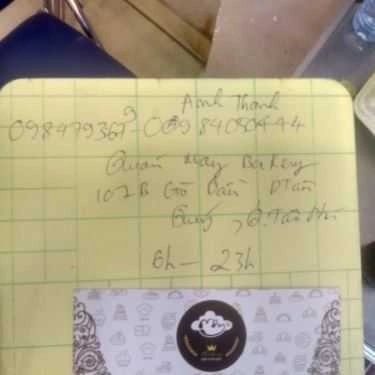 Anh Thanh
0984793679-0698408
Quán May Bakery
107B Gò Dầu P Tân
Quý, Q.Tân Phú
6h - 23h